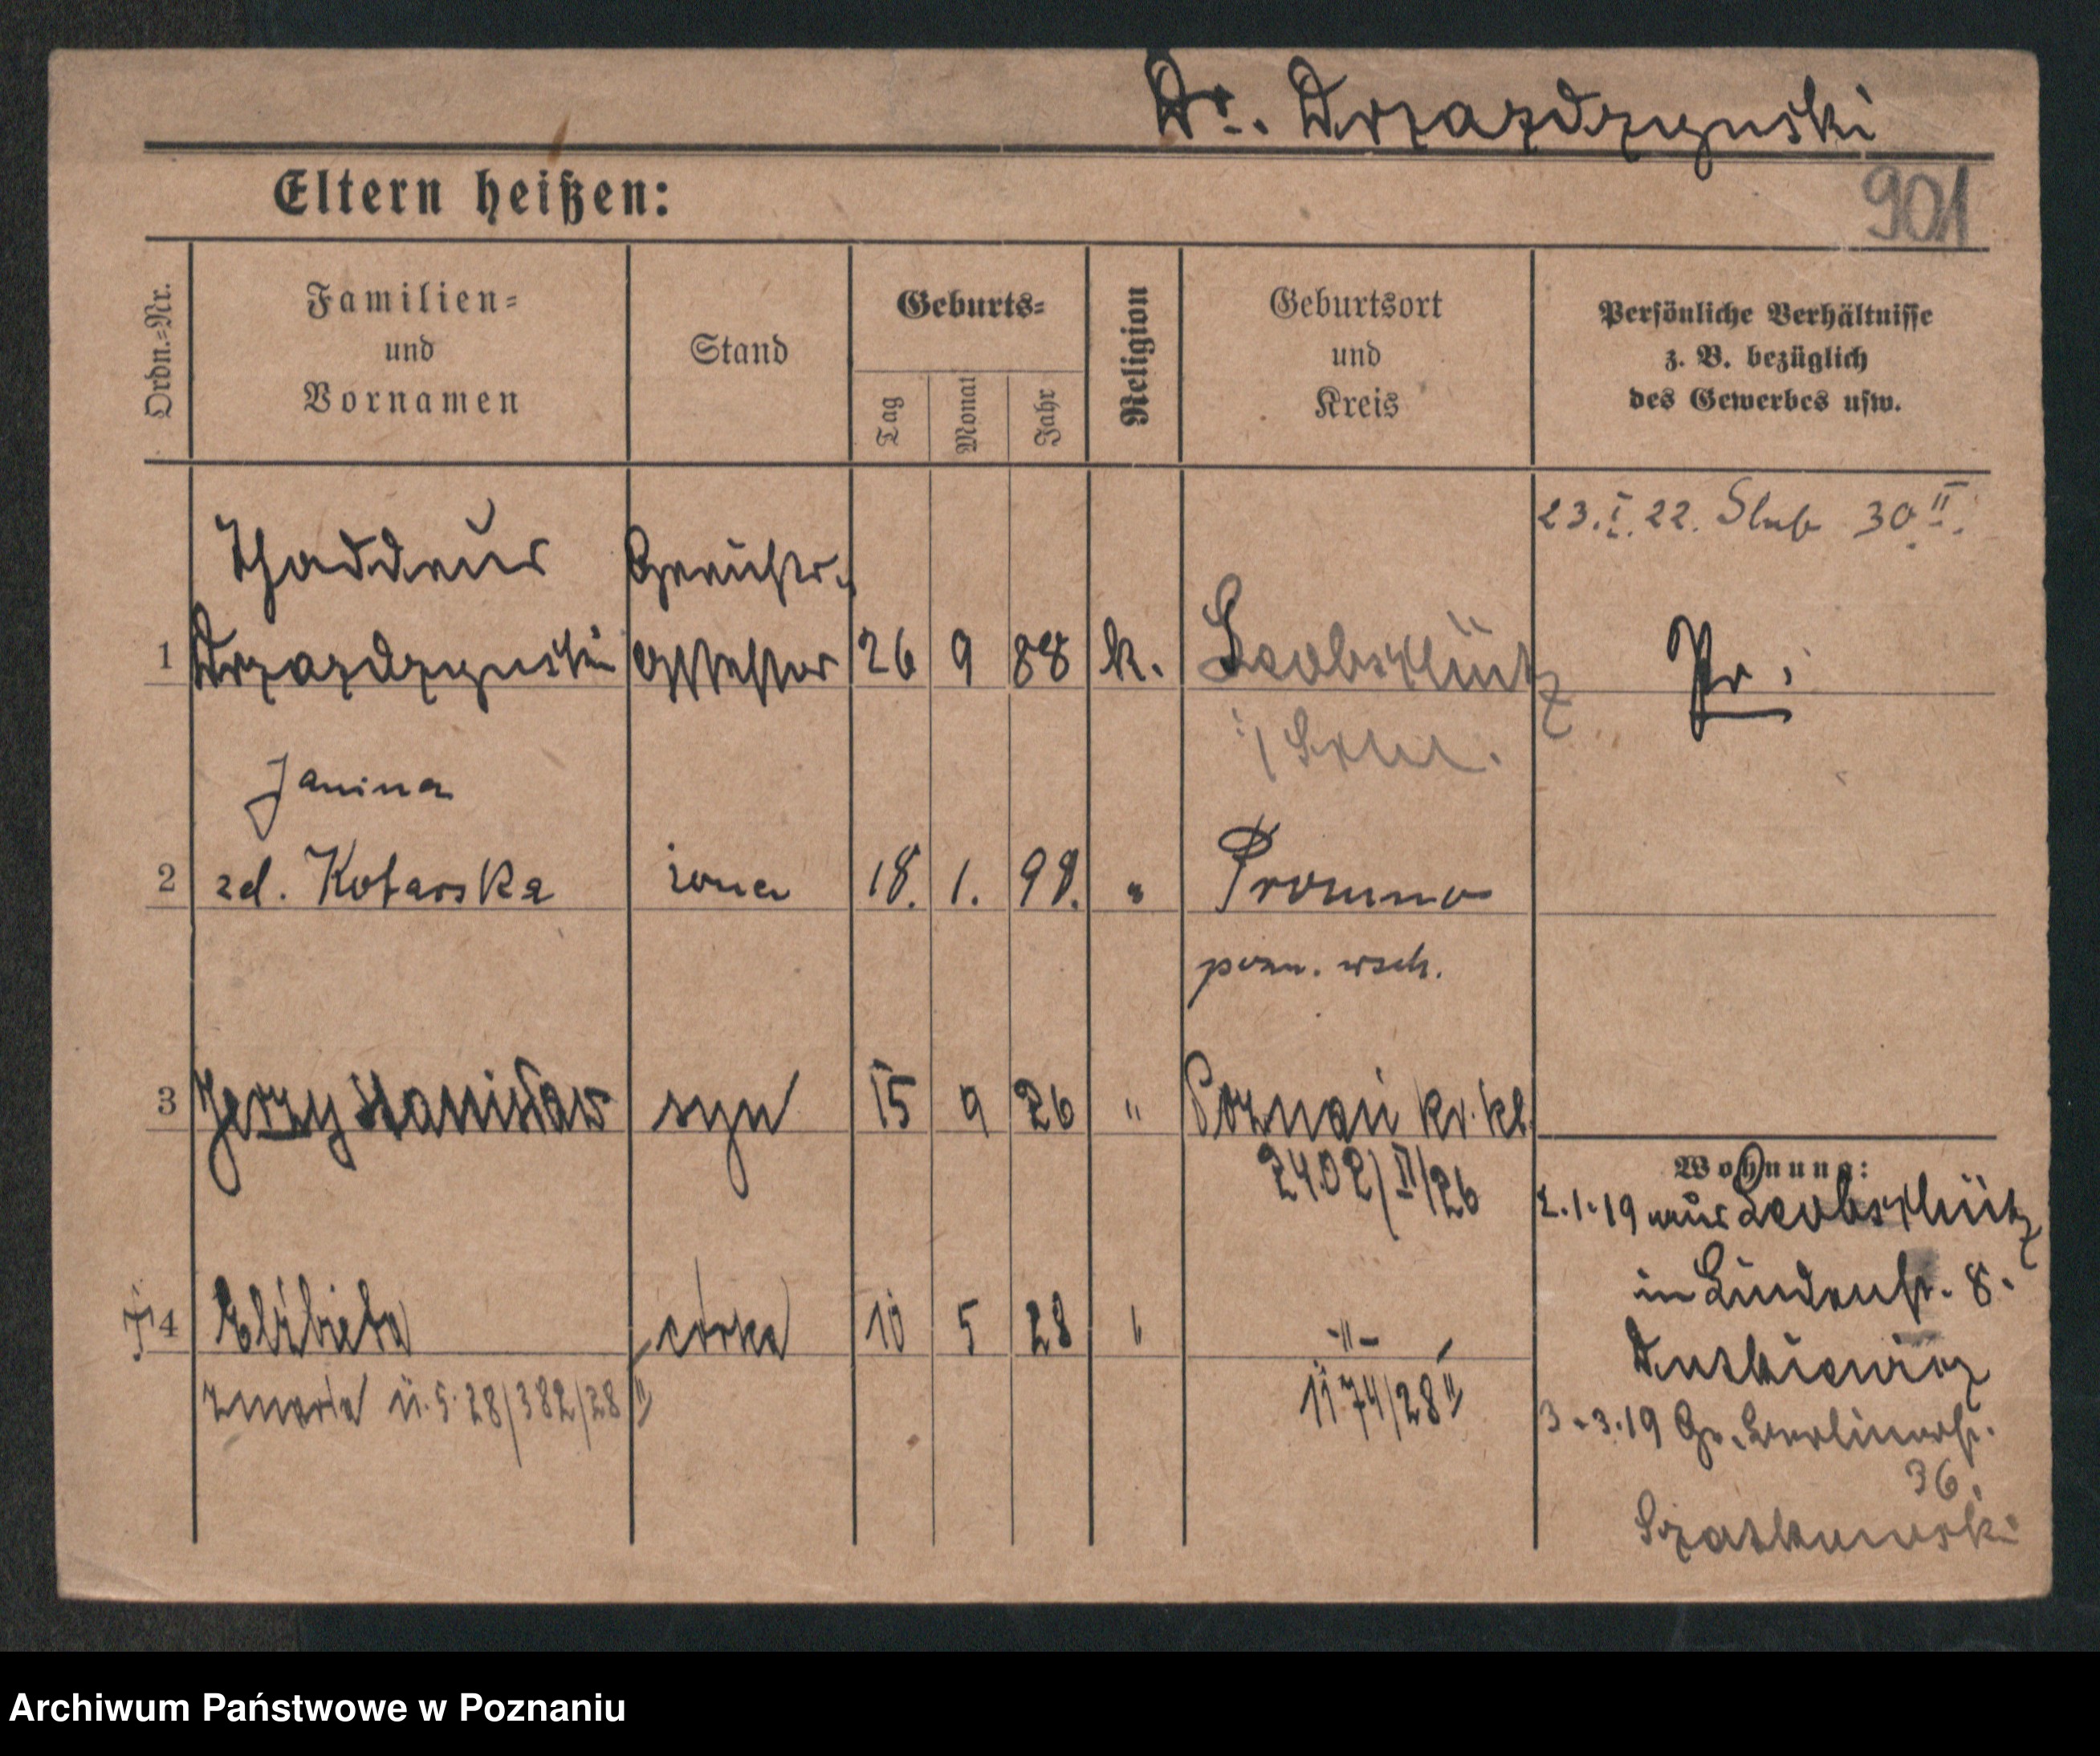 Dr. Drzazdzynski
901
Eltern heißen:
Ordn.-Nr.
Familien-
und
Vornamen
Stand
Geburts-
Tag
Monat
Jahr
Religion
Geburtsort
und
Kreis
Persönliche Verhältnisse
z. B. bezüglich
des Gewerbes usw.
23. I. 22. Slub 30 II.
Thaddeus Gerichts-
1 Drzazdzynski assessor 26 9 88 k. Leobschütz Pr.
Janina
2 zd. Kotarska żona 18. 1. 98. " Promno
pozn. wsch.
3 Jerzy Stanisław syn 15 9 26 " Poznań kr. kl.
2402/II/26
Wohnung:
2.1.19 aus Leobschütz
in Lindenstr. 8.
4 Elżbieta córka 10 5 28 " -"-
zmarła 11.5.28/382/28 II
1174/28 II
3.3.19 Gr. Berlinerstr.
36.
Archiwum Państwowe w Poznaniu